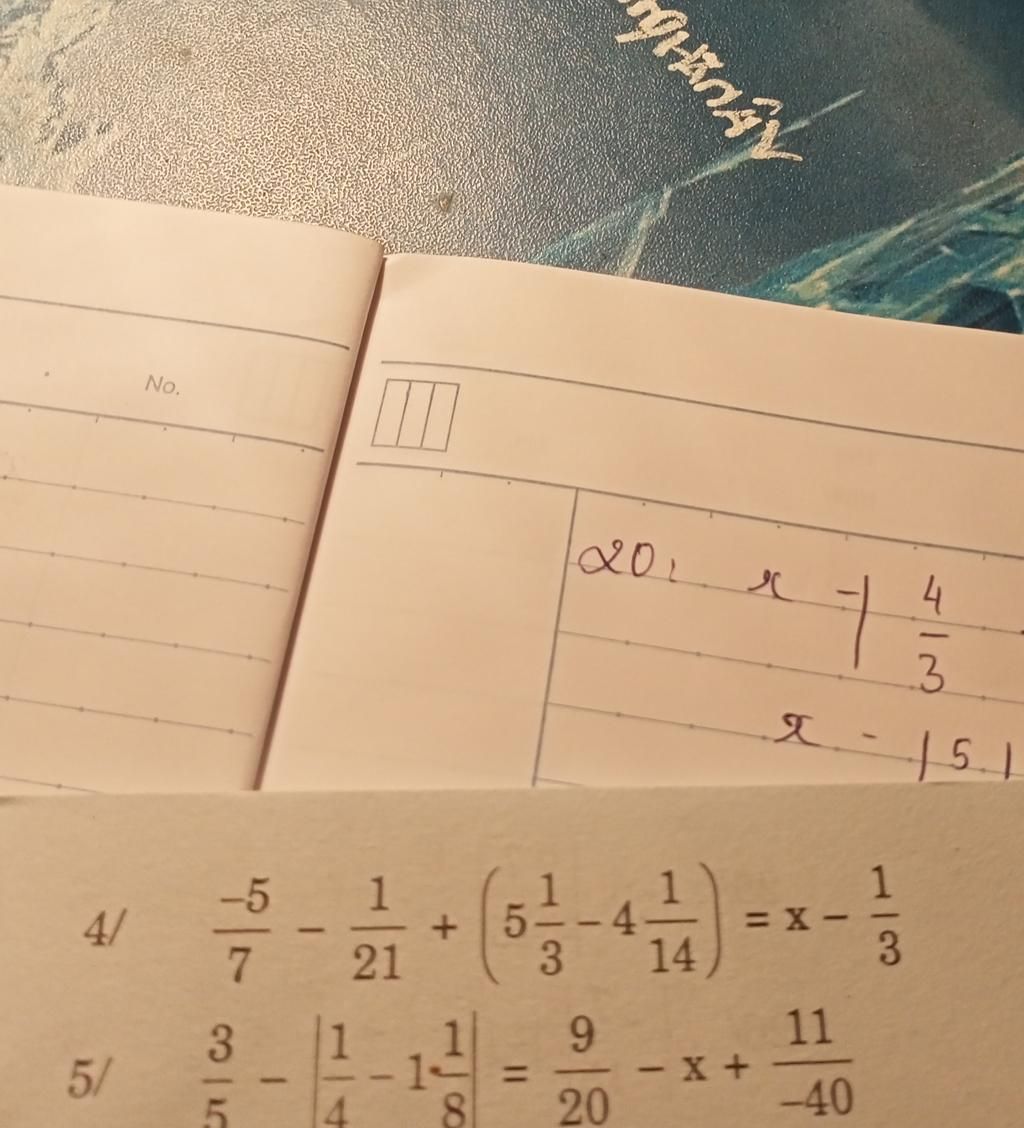 No.
20, x - | 4/3
x - | 5 |
4/ -5/7 - 1/21 + (5 1/3 - 4 1/14) = x - 1/3
5/ 3/5 - |1/4 - 1 1/8| = 9/20 - x + 11/-40